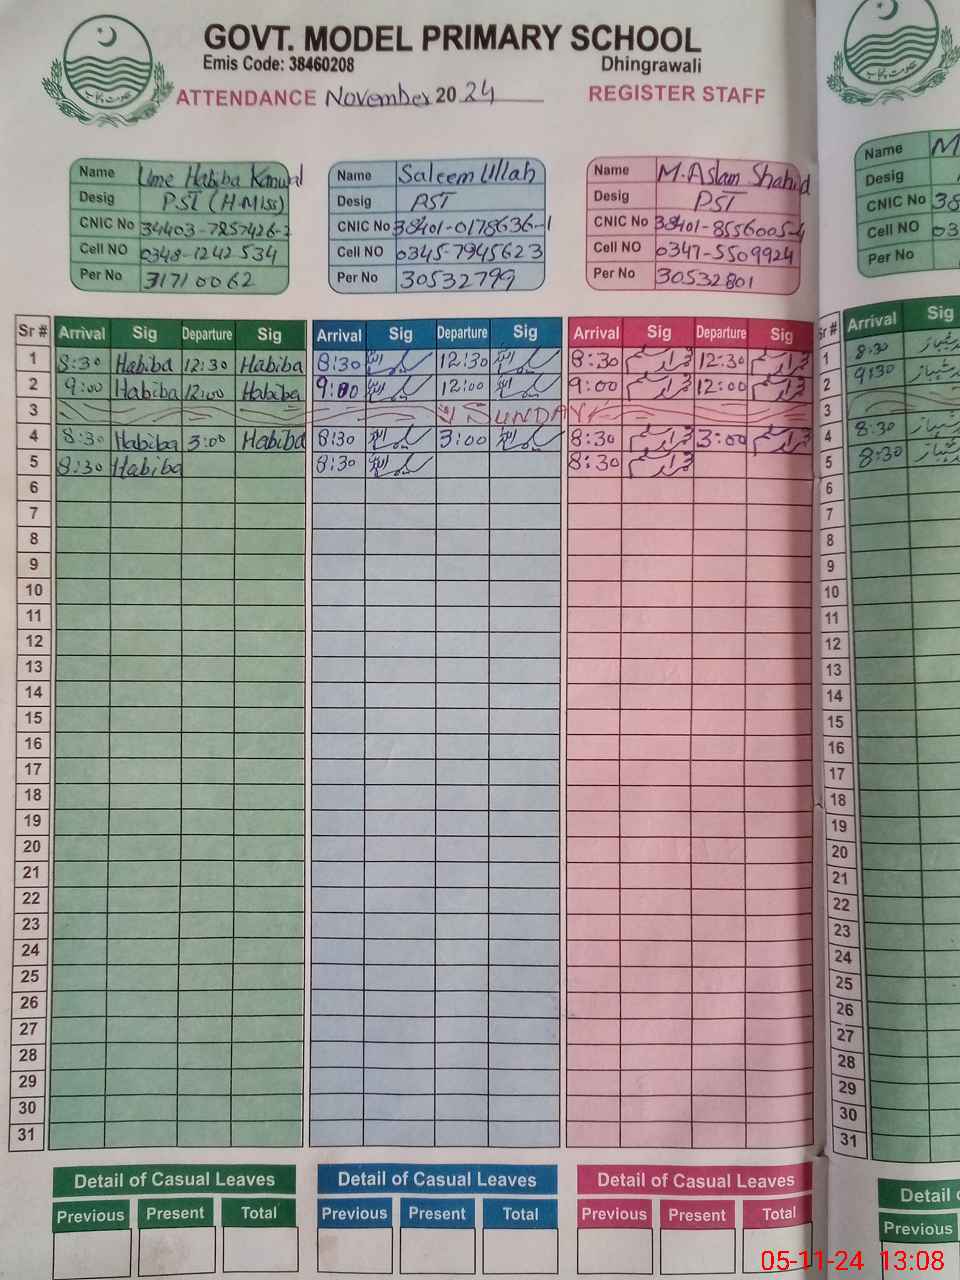 GOVT. MODEL PRIMARY SCHOOL
Emis Code: 38460208 Dhingrawali
ATTENDANCE November 2024 REGISTER STAFF
Name Ume Habiba Kanwal
Desig PST (H.Miss)
CNIC No 34403-7257426-2
Cell NO 0348-1242534
Per No 31710062
Name Saleem Ullah
Desig PST
CNIC No 38401-0178636-1
Cell NO 0345-7945623
Per No 30532799
Name M.Aslam Shahid
Desig PST
CNIC No 38401-8556005-4
Cell NO 0347-5509924
Per No 30532801
Name M
Desig
CNIC No 38
Cell NO 03
Per No
Sr # Arrival Sig Departure Sig Arrival Sig Departure Sig Arrival Sig Departure Sig Sr # Arrival Sig
1 8:30 Habiba 12:30 Habiba 8:30 12:30 8:30 12:30 1 8:30
2 9:00 Habiba 12:00 Habiba 9:00 12:00 9:00 12:00 2 9:30
3 SUNDAY 3
4 8:30 Habiba 3:00 Habiba 8:30 3:00 8:30 3:00 4 8:30
5 8:30 Habiba 8:30 8:30 5 8:30
6 6
7 7
8 8
9 9
10 10
11 11
12 12
13 13
14 14
15 15
16 16
17 17
18 18
19 19
20 20
21 21
22 22
23 23
24 24
25 25
26 26
27 27
28 28
29 29
30 30
31 31
Detail of Casual Leaves Detail of Casual Leaves Detail of Casual Leaves Detail
Previous Present Total Previous Present Total Previous Present Total Previous
05-11-24 13:08